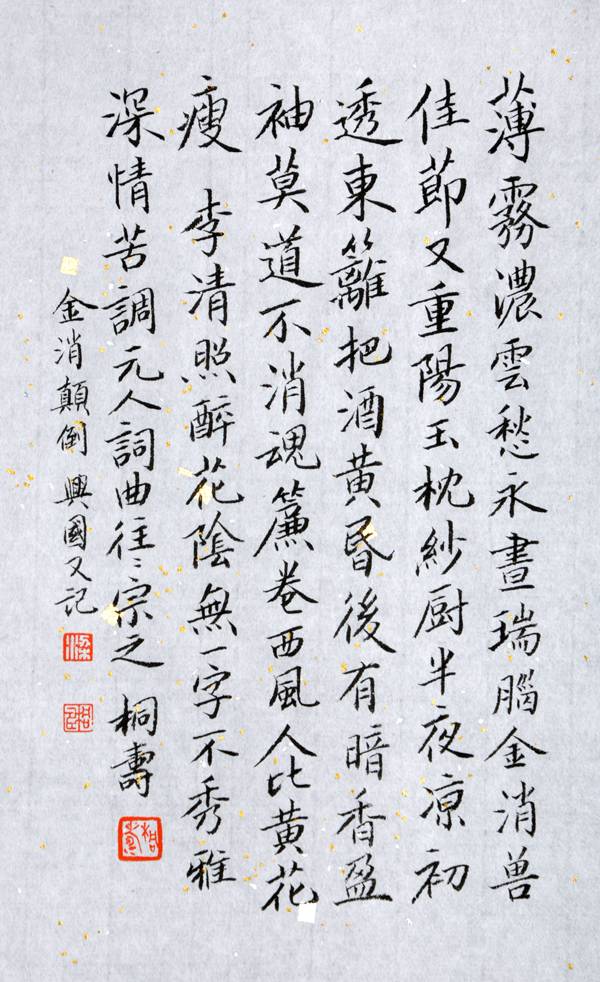 薄霧濃雲愁永晝瑞腦金消兽
佳節又重陽玉枕紗厨半夜凉初
透東籬把酒黄昏後有暗香盈
袖莫道不消魂簾卷西風人比黄花
瘦 李清照醉花陰無一字不秀雅
深情苦調元人詞曲往〻宗之 桐壽
金消顛倒 興國又記